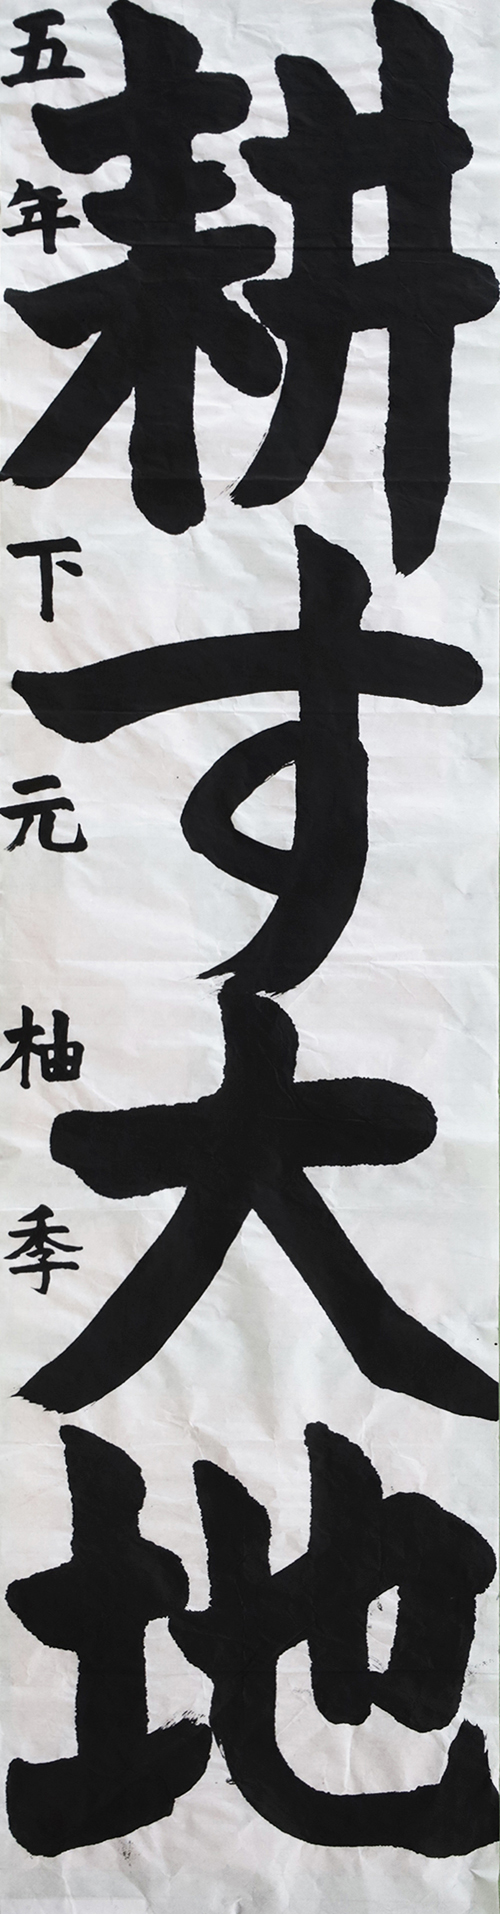 耕す大地
五年 下元 柚季